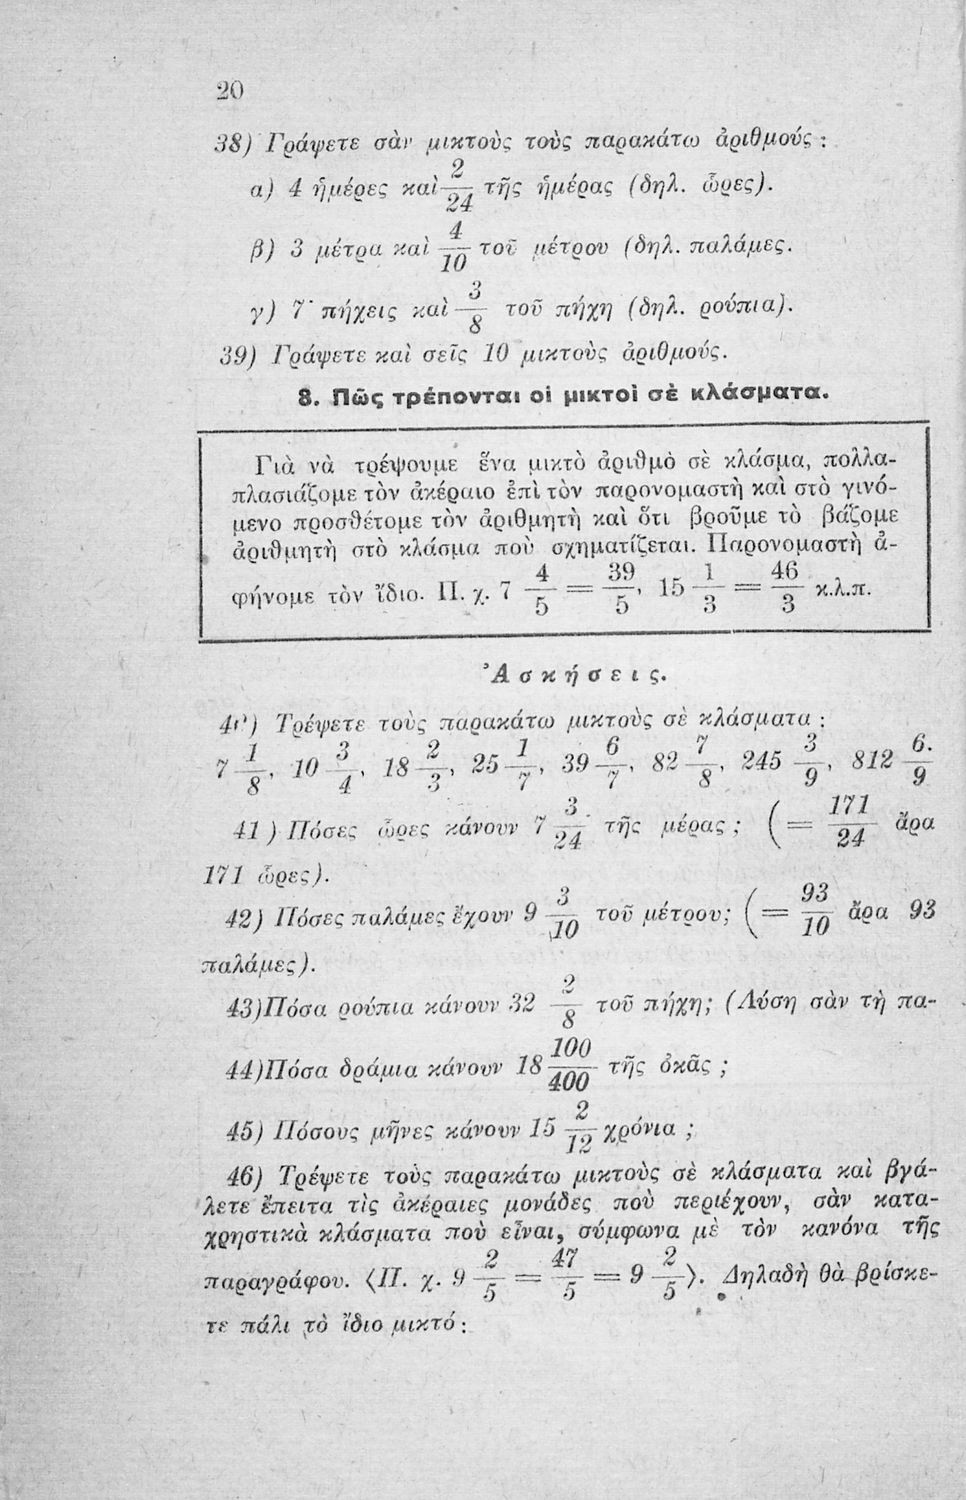 20
38) Γράψετε σὰν μικτοὺς τοὺς παρακάτω ἀριθμούς :
α) 4 ἡμέρες καὶ 2/24 τῆς ἡμέρας (δηλ. ὧρες).
β) 3 μέτρα καὶ 4/10 τοῦ μέτρου (δηλ. παλάμες.
γ) 7 πήχεις καὶ 3/8 τοῦ πήχη (δηλ. ρούπια).
39) Γράψετε καὶ σεῖς 10 μικτοὺς ἀριθμούς.
8. Πῶς τρέπονται οἱ μικτοὶ σὲ κλάσματα.
Γιὰ νὰ τρέψουμε ἕνα μικτὸ ἀριθμὸ σὲ κλάσμα, πολλα-
πλασιάζομε τὸν ἀκέραιο ἐπὶ τὸν παρονομαστὴ καὶ στὸ γινό-
μενο προσθέτομε τὸν ἀριθμητὴ καὶ ὅτι βροῦμε τὸ βάζομε
ἀριθμητὴ στὸ κλάσμα ποὺ σχηματίζεται. Παρονομαστὴ ἀ-
φήνομε τὸν ἴδιο. Π. χ. 7 4/5 = 39/5, 15 1/3 = 46/3 κ.λ.π.
Ἀσκήσεις.
40) Τρέψετε τοὺς παρακάτω μικτοὺς σὲ κλάσματα :
7 1/8, 10 3/4, 18 2/3, 25 1/7, 39 6/7, 82 7/8, 245 3/9, 812 6/9.
41) Πόσες ὧρες κάνουν 7 3/24 τῆς μέρας ; (= 171/24 ἄρα
171 ὧρες).
42) Πόσες παλάμες ἔχουν 9 3/10 τοῦ μέτρου; (= 93/10 ἄρα 93
παλάμες).
43)Πόσα ρούπια κάνουν 32 2/8 τοῦ πήχη; (Λύση σὰν τὴ πα-
44)Πόσα δράμια κάνουν 18 100/400 τῆς ὀκᾶς ;
45) Πόσους μῆνες κάνουν 15 2/12 χρόνια ;
46) Τρέψετε τοὺς παρακάτω μικτοὺς σὲ κλάσματα καὶ βγά-
λετε ἔπειτα τὶς ἀκέραιες μονάδες ποὺ περιέχουν, σὰν κατα-
χρηστικὰ κλάσματα ποὺ εἶναι, σύμφωνα μὲ τὸν κανόνα τῆς
παραγράφου. (Π. χ. 9 2/5 = 47/5 = 9 2/5). Δηλαδὴ θὰ βρίσκε-
τε πάλι τὸ ἴδιο μικτό :